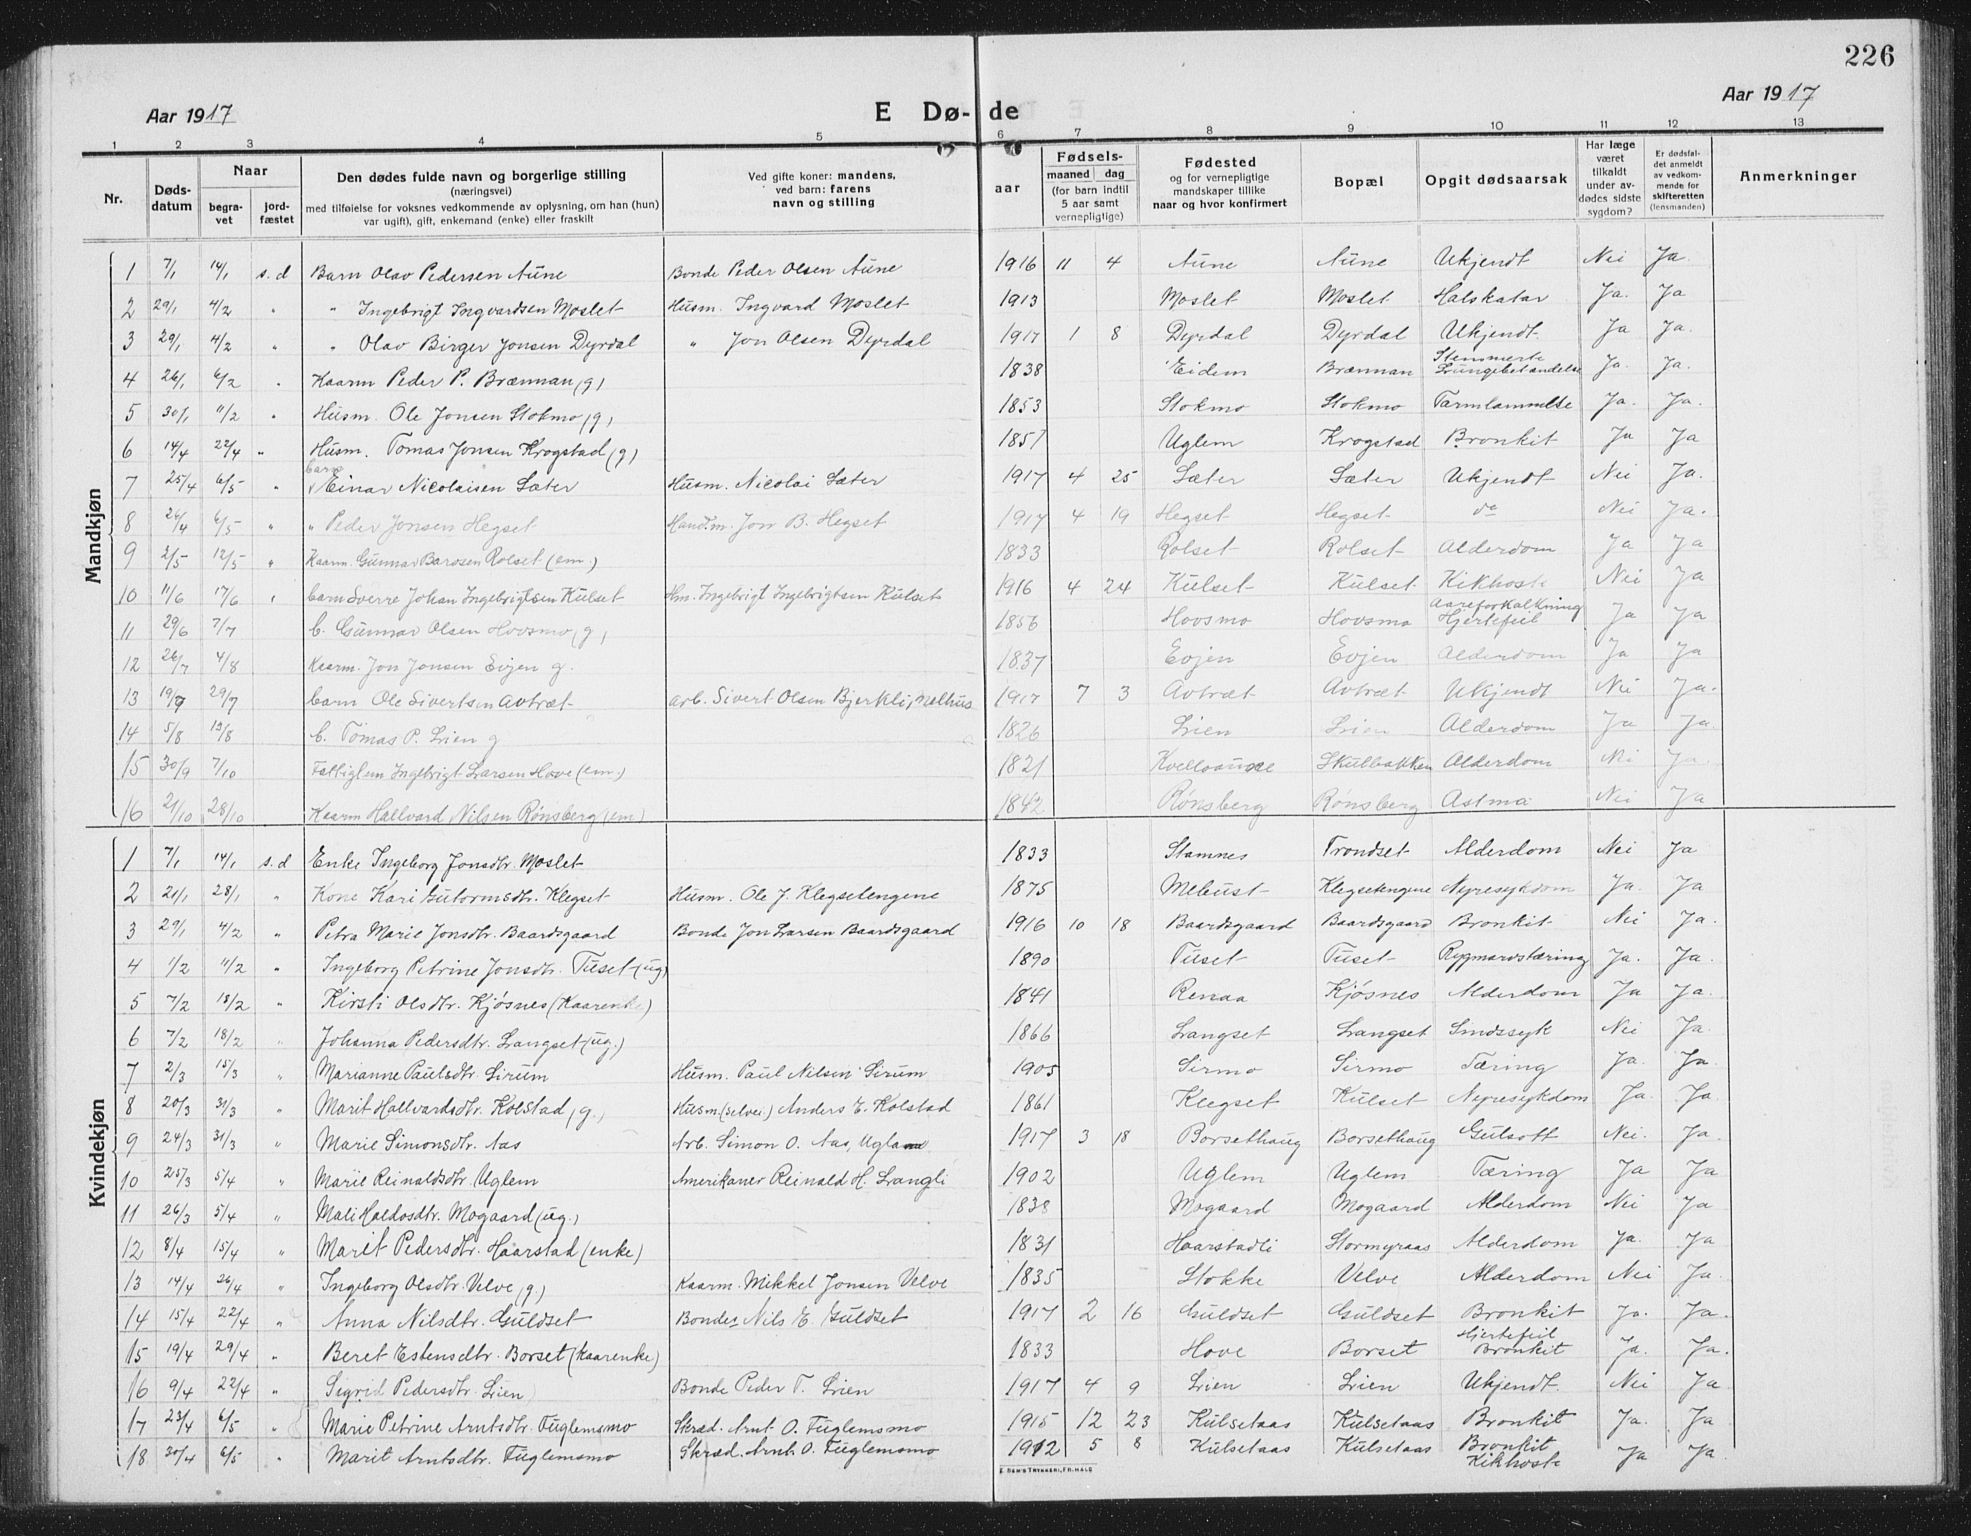 226
Aar 1917
E Dø-de
Aar 1917
1 2 3 4 5 6 7 8 9 10 11 12 13
Nr.
Døds-datum
Naar
begra-vet
jord-fæstet
Den dødes fulde navn og borgerlige stilling
(næringsvei)
med tilføielse for voksnes vedkommende av oplysning, om han (hun)
var ugift), gift, enkemand (enke) eller fraskilt
Ved gifte koner: mandens,
ved barn: farens
navn og stilling
aar
Fødsels-
maaned dag
(for barn indtil
5 aar samt
vernepligtige)
Fødested
og for vernepligtige
mandskaper tillike
naar og hvor konfirmert
Bopæl
Opgit dødsaarsak
Har læge
været
tilkaldt
under av-
dødes sidste
sygdom?
Er dødsfal-
det anmeldt
av vedkom-
mende for
skifteretten
(lensmanden)
Anmerkninger
Mandkjøn
1 7/1 14/1 s.d Barn Olav Pedersen Aune Bonde Peder Olsen Aune 1916 11 4 Aune Aune Ukjendt Nei Ja.
2 29/1 4/2 " " Ingebrigt Ingvardsen Moslet Husm. Ingvard Moslet 1913 Moslet Moslet Halskatar Ja. Ja
3 29/1 4/2 " " Olav Birger Jonsen Dyrdal " Jon Olsen Dyrdal 1917 1 8 Dyrdal Dyrdal Ukjendt. Ja Ja.
4 26/1 6/2 " Kaarm Peder P. Brænnan (g) 1838 Eidem Brænnan Stensmerte Lungebetændelse Ja. Ja.
5 30/1 11/2 " Husm. Ole Jonsen Stokmo (g) 1853 Stokmo Stokmo Tarmlammelse Ja. Ja.
6 14/4 22/4 " Husm. Tomas Jonsen Krogstad (g) 1851 Uglem Krogstad Bronkit Ja Ja
7 25/4 6/5 " barn Einar Nicolaisen Sæter Husm. Nicolai Sæter 1917 4 25 Sæter Sæter Ukjendt Nei Ja.
8 26/4 6/5 " " Peder Jonsen Hegset Handm. Jon B. Hegset 1917 4 19 Hegset Hegset do Nei Ja.
9 2/5 12/5 " Kaarm. Gunnar Barosen Rolset (em.) 1833 Rolset Rolset Alderdom Ja Ja
10 11/6 17/6 " barn Sverre Johan Ingebrigtsen Kulset Hm. Ingebrigt Ingebrigtsen Kulset 1916 4 24 Kulset Kulset Kikhoste Nei Ja
11 29/6 7/7 b. Gunnar Olsen Hovsmo (g) 1856 Hovsmo Hovsmo Aareforkalkning Hjertefeil Ja Ja
12 26/7 4/8 Kaarm. Jon Jonsen Evjen g. 1837 Evjen Evjen Alderdom Ja Ja
13 19/7 29/7 barn Ole Sivertsen Avtræt Arb. Sivert Olsen Bjerkli, Melhus 1917 7 3 Avtræt Avtræt Ukjendt Nei Ja.
14 5/8 13/8 b. Tomas P. Lien g 1826 Lien Lien Alderdom Ja Ja.
15 30/9 7/10 Fattiglem Ingebrigt Larsen Hove (em.) 1821 Skulbakken Alderdom Nei Ja.
16 21/10 28/10 Kaarm Hallvard Nilsen Rønsberg (em) 1842 Rønsberg Rønsberg Astma Nei Ja
Kvindekjøn
1 7/1 14/1 s.d Enke Ingeborg Jonsdtr. Moslet 1833 Stamnes Trondset Alderdom Nei Ja
2 21/1 28/1 " Kone Kari Gutormsdtr. Klegset Husm. Ole J. Klegsetengene 1875 Mebust Klegsetengene Nyresykdom Ja. Ja
3 29/1 4/2 " Petra Marie Jonsdtr. Baardsgaard Bonde Jon Larsen Baardsgaard 1916 10 18 Baardsgaard Baardsgaard Bronkit Nei Ja.
4 1/2 11/2 " Ingeborg Petrine Jonsdtr. Tuset (ug) 1890 Tuset Tuset Rygmarvstæring Ja. Ja.
5 7/2 18/2 " Kirsti Olsdtr. Kjøsnes (Kaarenke) 1841 Renaa Kjøsnes Alderdom Ja Ja.
6 7/2 18/2 " Johanna Pedersdtr. Langset (ug.) 1866 Langset Langset Sindssyk Nei Ja.
7 2/3 15/3 " Marianne Paulsdtr. Sirum Husm. Paul Nilsen Sirum 1905 Sirmo Sirmo Tæring Ja. Ja.
8 20/3 31/3 " Marit Hallvardsdtr. Kolstad (g.) Husm. (selvei.) Anders E. Kolstad 1861 Klegset Kulset Nyresykdom Ja. Ja.
9 24/3 31/3 " Marie Simonsdtr. Aas Arb. Simon O. Aas, 1917 3 18 Borsethaug Borsethaug Gulsott Nei. Ja.
10 25/3 5/4 " Marie Reinaldsdtr. Uglem Amerikaner Reinald H. Langli 1902 Uglem Uglem Tæring Ja Ja
11 26/3 5/4 " Mali Haldosdtr. Mogaard (ug.) 1838 Mogaard Mogaard Alderdom Nei Ja
12 8/4 15/4 " Marit Pedersdtr. Haarstad (enke) 1831 Haarstadli Stormyraas Alderdom Ja. Ja
13 14/4 26/4 " Ingeborg Olsdtr. Velve (g.) Kaarm. Mikkel Jonsen Velve 1835 Stokke Velve Alderdom Nei Ja.
14 15/4 22/4 " Anna Nilsdtr. Guldset Bonde Nils E. Guldset 1917 2 16 Guldset Guldset Bronkit Ja. Ja.
15 19/4 29/4 " Beret Estensdtr. Borset (Kaarenke) 1833 Hove Borset Hjertefeil Bronkit Ja. Ja.
16 9/4 22/4 " Sigrid Pedersdtr. Lien Bonde Peder T. Lien 1917 4 9 Lien Lien Ukjendt. Nei Ja
17 23/4 6/5 " Marie Petrine Arntsdtr. Fuglemsmo Skræd. Arnt O. Fuglemsmo 1915 12 23 Kulsetaas Kulsetaas Bronkit Ja. Ja
18 30/4 6/5 " Marit Arntsdtr. Fuglemsmo Skræd. Arnt O. Fuglemsmo 1912 5 8 Kulsetaas Kulsetaas Bronkit Kikhoste Ja Ja.
E. SEM'S TRYKKERI, FR.HALD